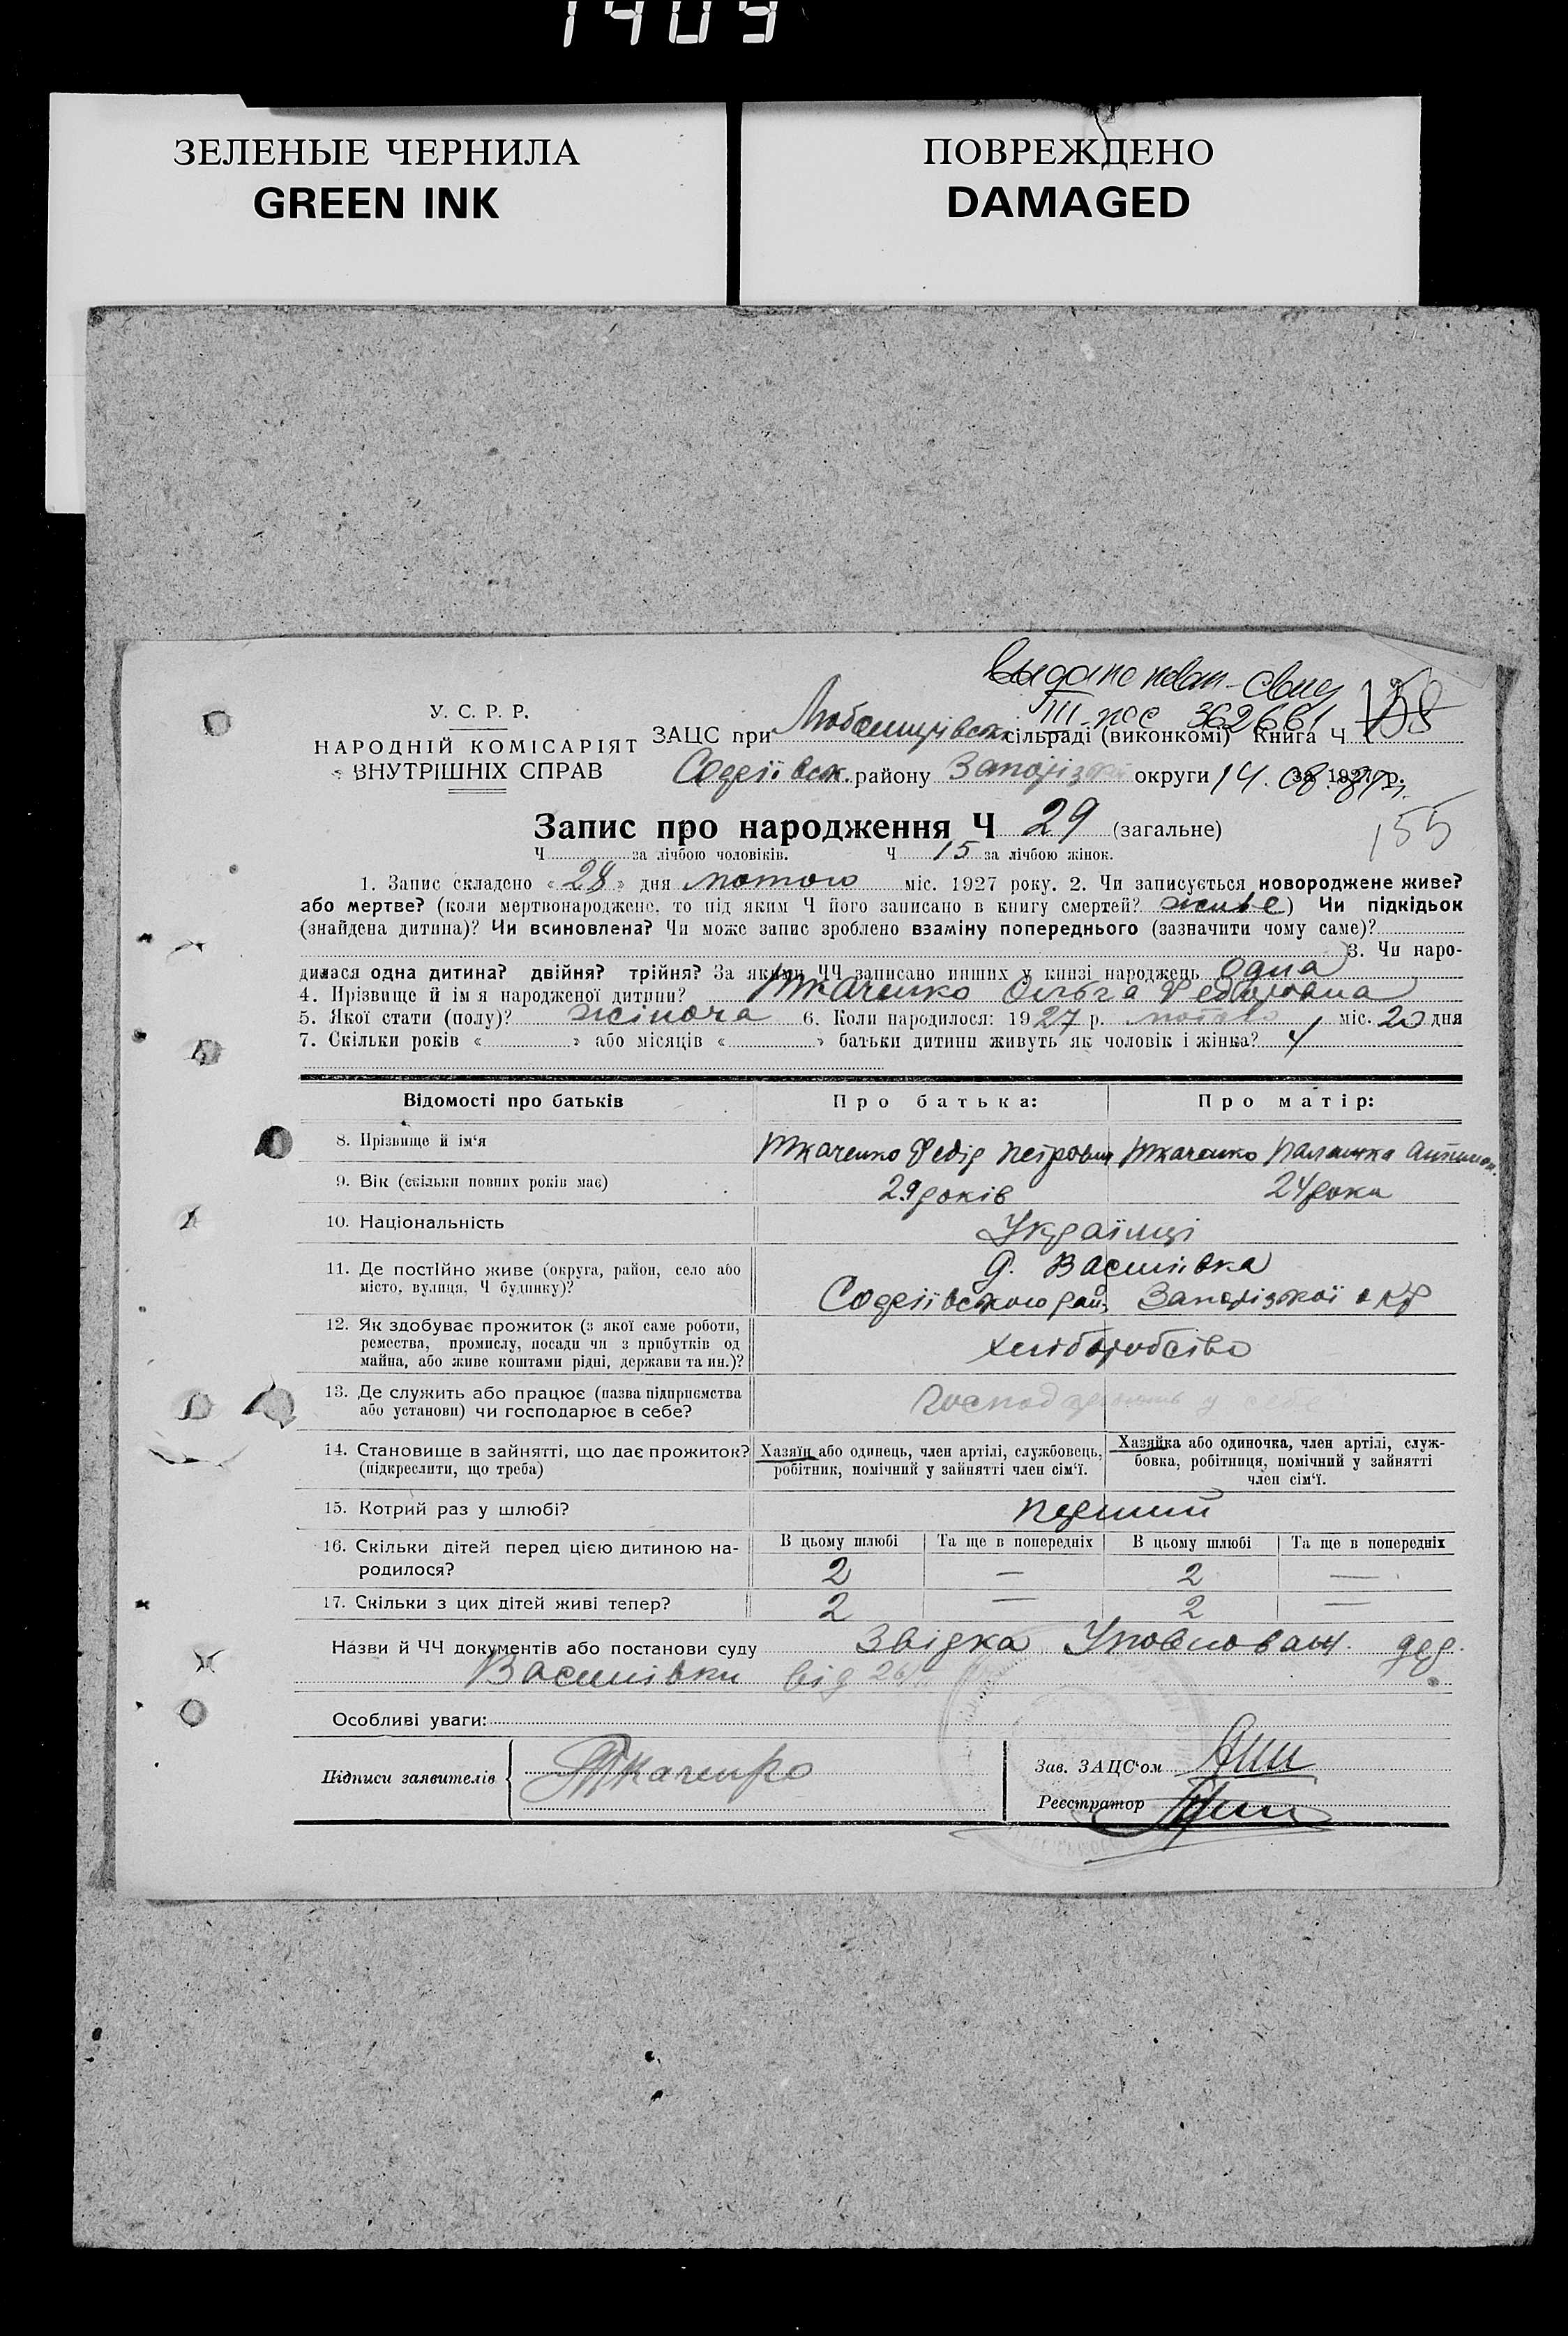 1409
ЗЕЛЕНЫЕ ЧЕРНИЛА
GREEN INK
ПОВРЕЖДЕНО
DAMAGED
Выдано повт-свид
III-ЖС 362661
У. С. Р. Р.
НАРОДНІЙ КОМІСАРІЯТ
ВНУТРІШНІХ СПРАВ
ЗАЦС при сільраді (виконкомі) Книга Ч 158
Софіївськ. району Запорізької округи за 1927 р.
14.08.87г.
155
Запис про народження Ч 29 (загальне)
Ч за лічбою чоловіків. Ч 15 за лічбою жінок.
1. Запис складено «28» дня лютого міс. 1927 року. 2. Чи записується новороджене живе?
або мертве? (коли мертвонароджене, то під яким Ч його записано в книгу смертей? живе) Чи підкідьок
(знайдена дитина)? Чи всиновлена? Чи може запис зроблено взаміну попереднього (зазначити чому саме)?
3. Чи наро-
дилася одна дитина? двійня? трійня? За якими ЧЧ записано инших у книзі народжень одна
4. Прізвище й ім'я народженої дитини? Ткаченко Ольга Федоровна
5. Якої стати (полу)? жіноча 6. Коли народилося: 1927 р. лютого міс. 20 дня
7. Скільки років « » або місяців « » батьки дитини живуть як чоловік і жінка? 4
Відомості про батьків Про батька: Про матір:
8. Прізвище й ім'я Ткаченко Федір Петрович Ткаченко Палашка
9. Вік (скільки повних років має) 29 років 24 роки
10. Національність Українці
11. Де постійно живе (округа, район, село або
місто, вулиця, Ч будинку)?
д. Василівка
Софіївського рай. Запорізької окр
12. Як здобуває прожиток (з якої саме роботи,
ремества, промислу, посади чи з прибутків од
майна, або живе коштами рідні, держави та ин.)?
хліборобство
13. Де служить або працює (назва підприємства
або установи) чи господарює в себе?
господарюють у себе
14. Становище в зайнятті, що дає прожиток?
(підкреслити, що треба)
Хазяїн або одинець, член артілі, службовець,
робітник, помічний у зайнятті член сім'ї.
Хазяйка або одиночка, член артілі, служ-
бовка, робітниця, помічний у зайнятті
член сім'ї.
15. Котрий раз у шлюбі? перший
16. Скільки дітей перед цією дитиною на-
родилося?
В цьому шлюбі Та ще в попередніх В цьому шлюбі Та ще в попередніх
2 — 2 —
17. Скільки з цих дітей живі тепер? 2 — 2 —
Назви й ЧЧ документів або постанови суду Звідка Уповноваж. дер.
Василівки від 26/II
Особливі уваги:
Підписи заявителів Ткаченко
Зав. ЗАЦС'ом
Реєстратор